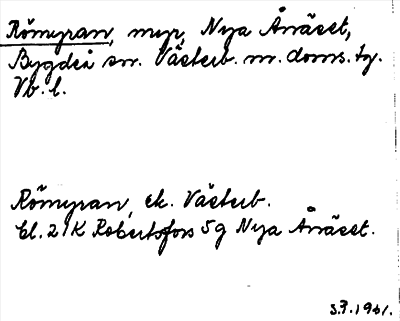 Römyran, myr, Nya Ånäset,
Bygdeå sn. Västerb. m. doms. tg.
Vb. l.
Römyran, ek. Västerb.
bl. 21K Robertsfors 5g Nya Ånäset.
S.P. 1961.